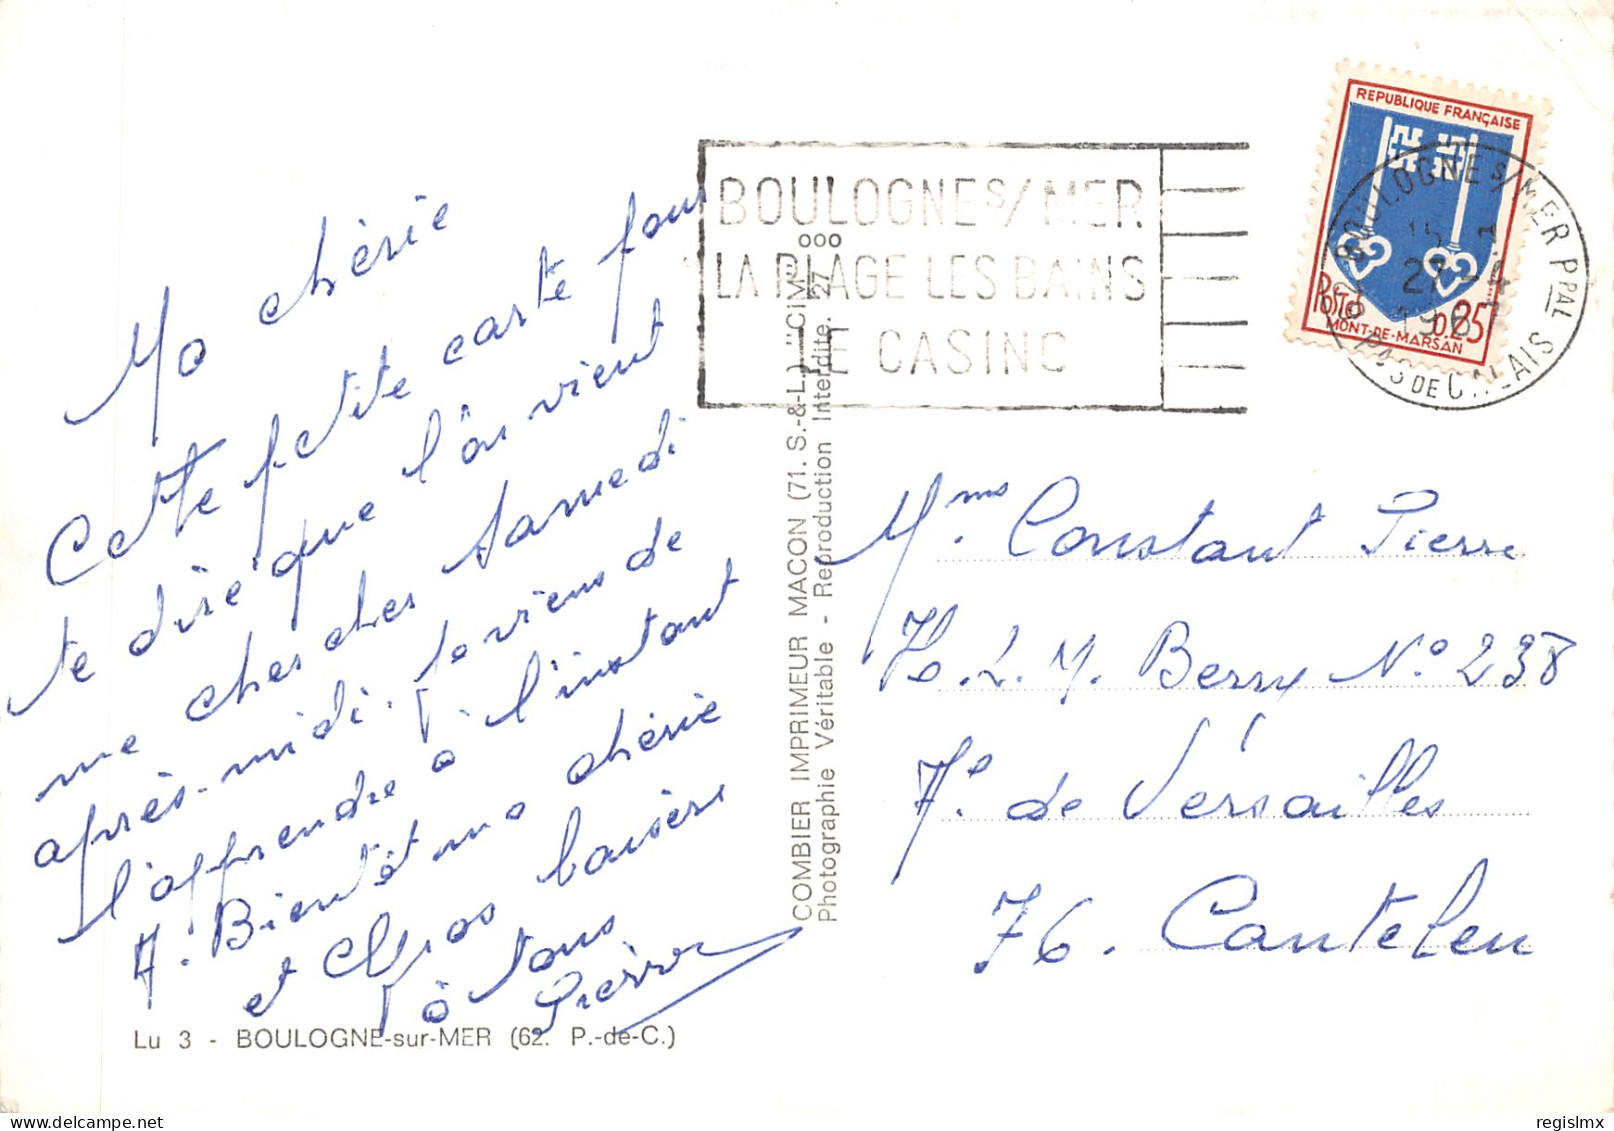 Ma chérie
Cette petite carte pour
te dire que l'on vient
me chercher Samedi
après-midi. Je viens de
l'apprendre à l'instant
A. Bientôt ma chérie
et Gros baisers
à tous
Pierre
Lu 3 - BOULOGNE-sur-MER (62. P.-de-C.)
COMBIER IMPRIMEUR MACON (71. S.-&-L.) "CIM"
Photographie Véritable - Reproduction Interdite. 27
BOULOGNE S/MER
LA PLAGE LES BAINS
LE CASINO
REPUBLIQUE FRANÇAISE
POSTES 0.25
MONT-DE-MARSAN
BOULOGNE S/MER PPAL
PAS DE CALAIS
27 - 4
Mme Constant Pierre
H.L.M. Berry No 238
de Versailles
76. Canteleu
regislmx